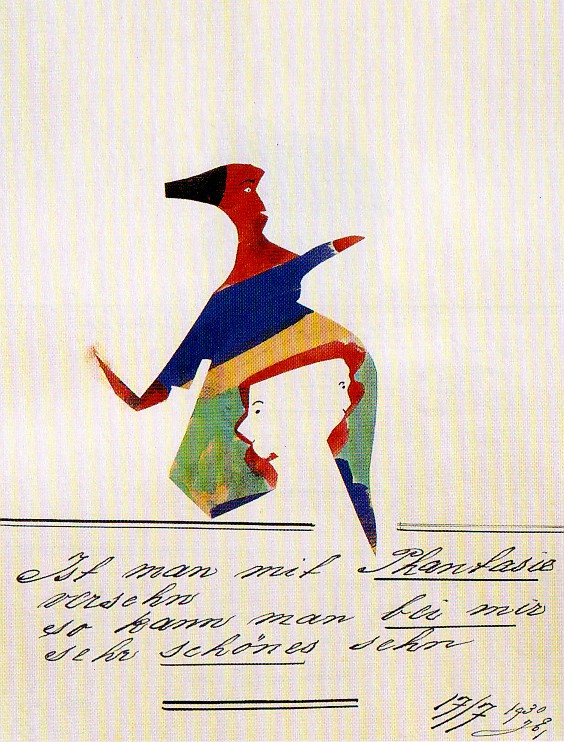 Ist man mit Phantasie
versehn
so kann man bei mir
sehr schönes sehn
17/7 1930